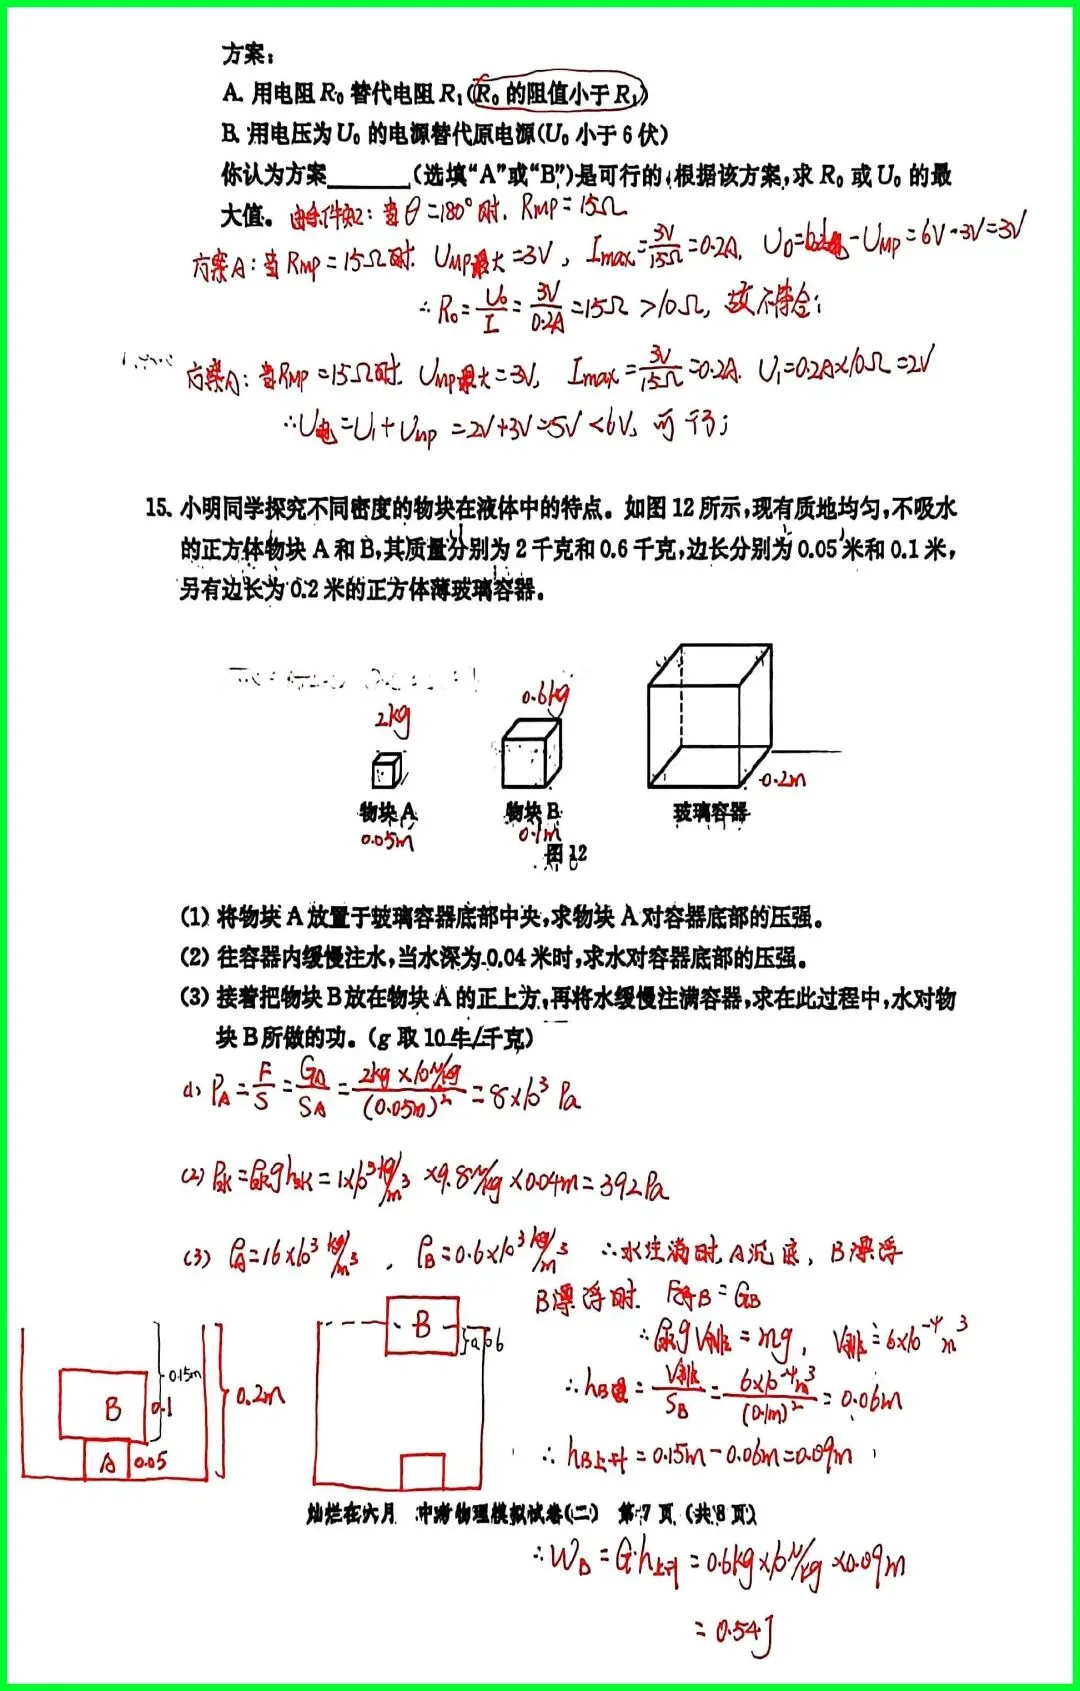 方案:
A. 用电阻 R₀ 替代电阻 R₁(R₀ 的阻值小于 R₁)
B. 用电压为 U₀ 的电源替代原电源(U₀ 小于 6 伏)
你认为方案______(选填“A”或“B”)是可行的,根据该方案,求 R₀ 或 U₀ 的最
大值。 由条件知2: 当θ=180°时. R_MP=15Ω
方案A: 当R_MP=15Ω时. U_MP最大=3V, I_max=3V/15Ω=0.2A. U₀=U电-U_MP=6V-3V=3V
∴R₀=U₀/I=3V/0.2A=15Ω>10Ω, 故不符合;
方案A: 当R_MP=15Ω时. U_MP最大=3V, I_max=3V/15Ω=0.2A. U₁=0.2A×10Ω=2V
∴U电=U₁+U_MP=2V+3V=5V<6V, 可行;
15. 小明同学探究不同密度的物块在液体中的特点。如图 12 所示,现有质地均匀,不吸水
的正方体物块 A 和 B,其质量分别为 2 千克和 0.6 千克,边长分别为 0.05 米和 0.1 米,
另有边长为 0.2 米的正方体薄玻璃容器。
2kg
0.6kg
0.2m
物块 A 物块 B 玻璃容器
0.05m 0.1m
图 12
(1) 将物块 A 放置于玻璃容器底部中央,求物块 A 对容器底部的压强。
(2) 往容器内缓慢注水,当水深为 0.04 米时,求水对容器底部的压强。
(3) 接着把物块 B 放在物块 A 的正上方,再将水缓慢注满容器,求在此过程中,水对物
块 B 所做的功。(g 取 10 牛/千克)
(1) P_A=F/S=G_A/S_A=2kg×10N/kg/(0.05m)²=8×10³ Pa
(2) P水=ρ水gh水=1×10³kg/m³×9.8N/kg×0.04m=392Pa
(3) ρ_A=16×10³kg/m³, ρ_B=0.6×10³kg/m³ ∴水注满时,A沉底,B漂浮
B漂浮时. F浮B=G_B
∴ρ水gV排=mg, V排=6×10⁻⁴m³
∴h_B浸=V排/S_B=6×10⁻⁴m³/(0.1m)²=0.06m
∴h_B上升=0.15m-0.06m=0.09m
B 0.1 0.15m 0.2m
A 0.05
B 0.06
灿烂在六月 中考物理模拟试卷(二) 第 7 页 (共 8 页)
∴W_B=G·h上升=0.6kg×10N/kg×0.09m
=0.54J